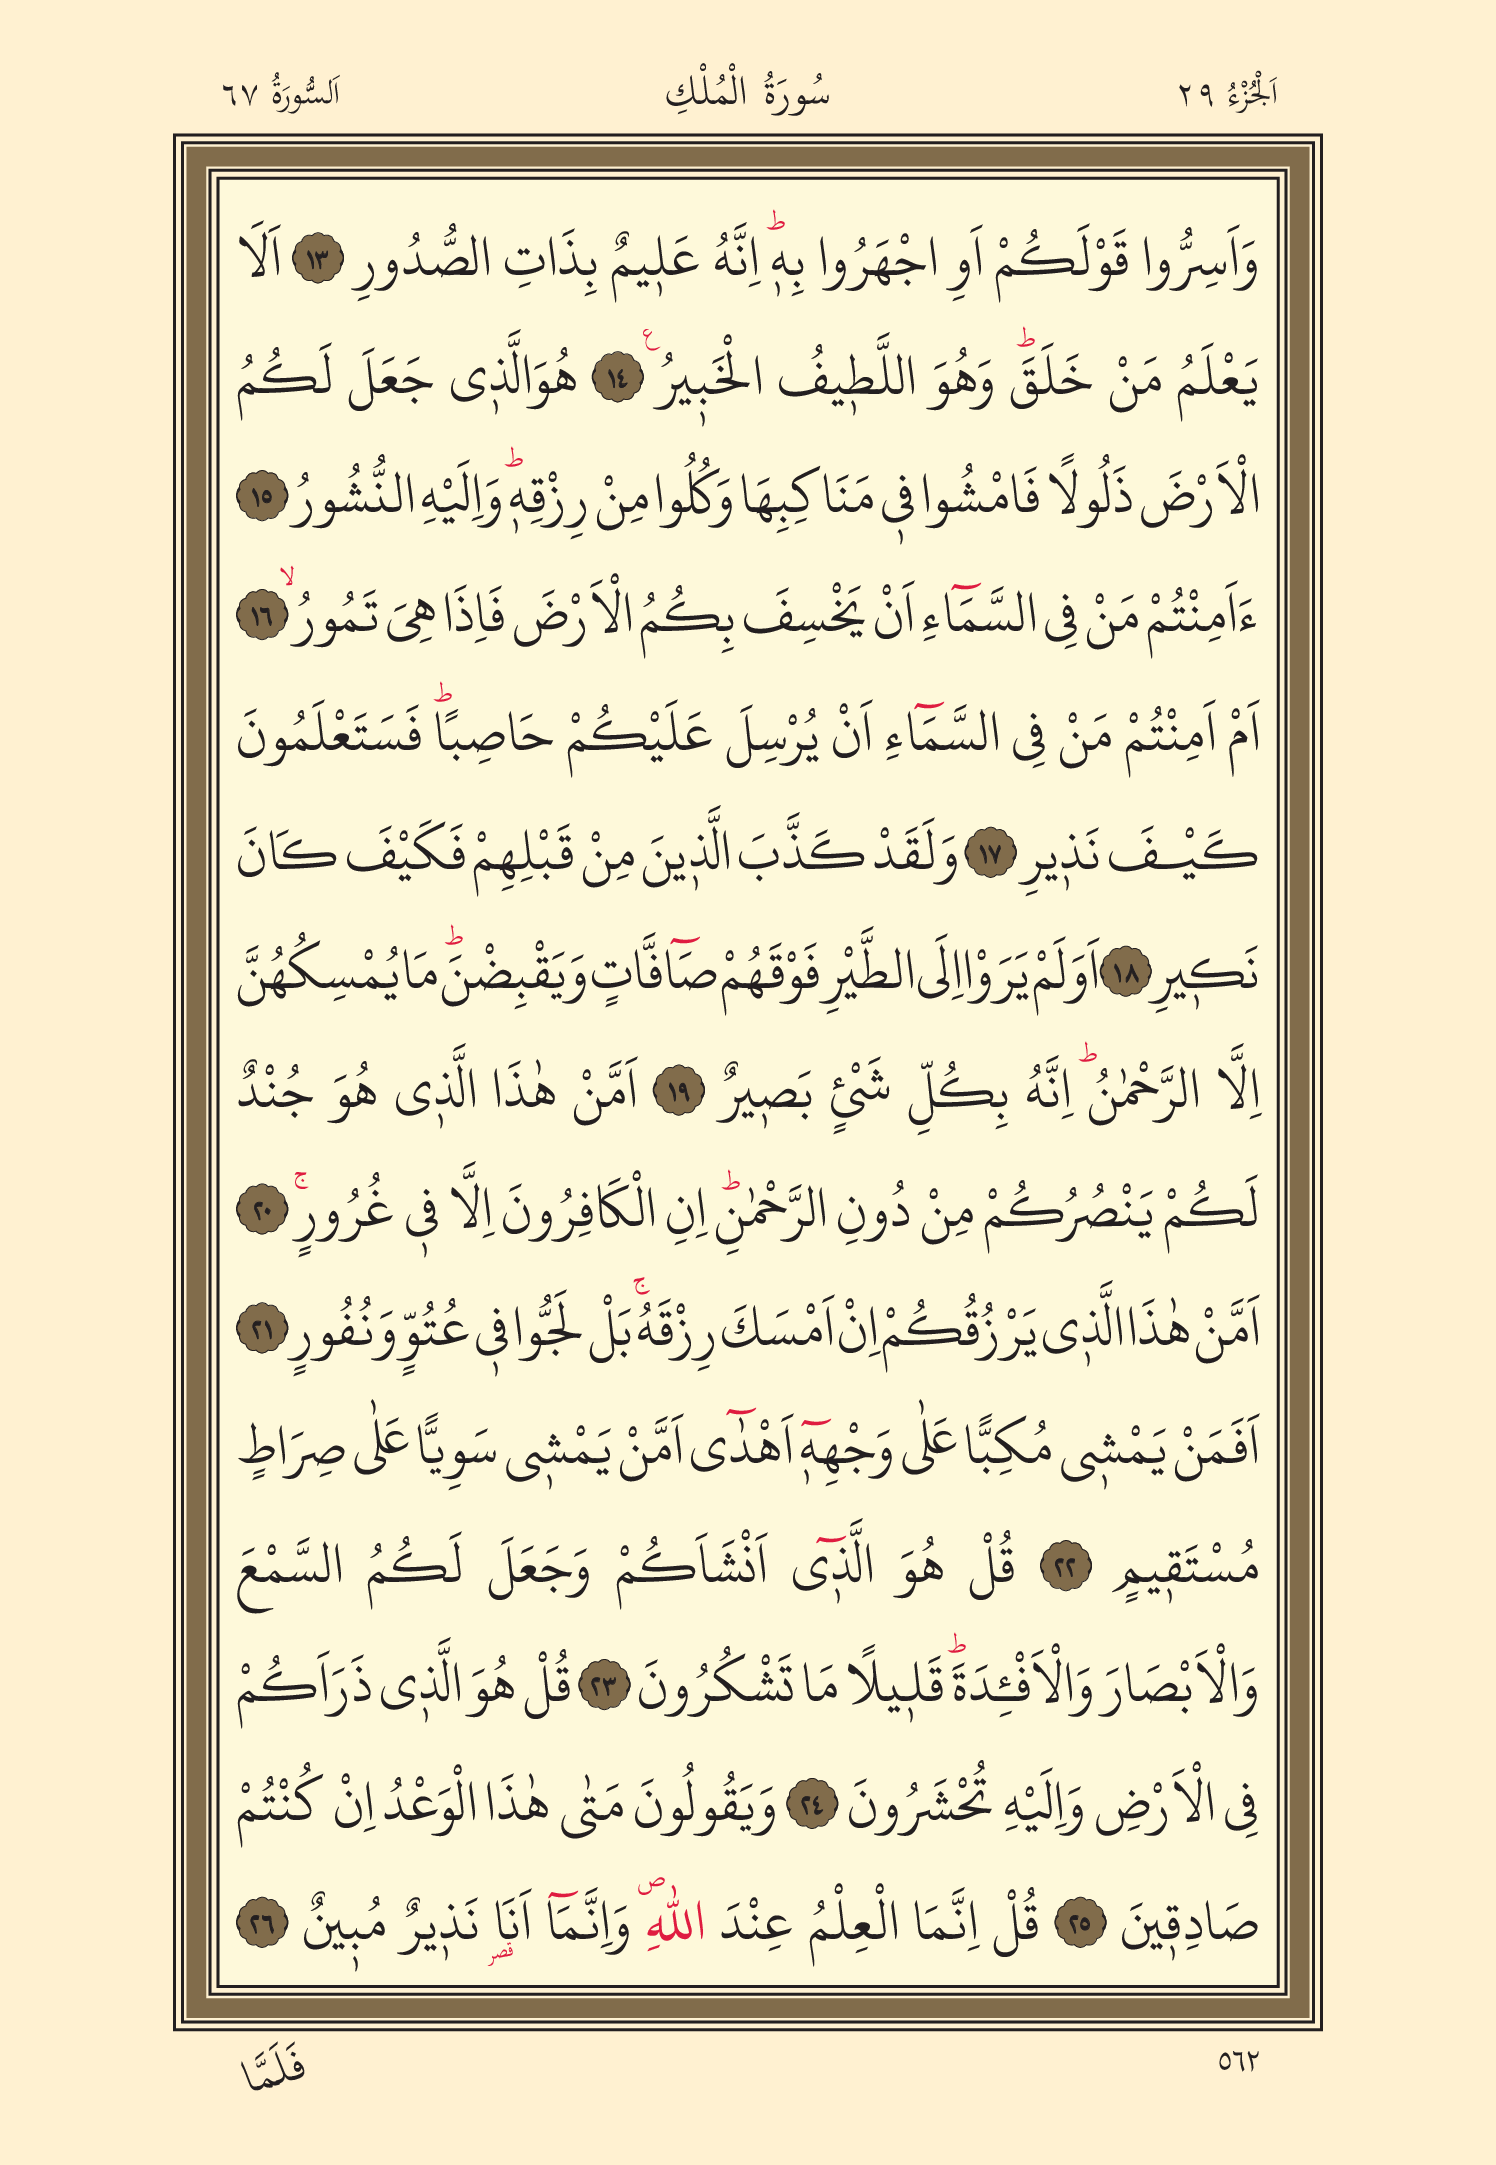 اَلْجُزْءُ ٢٩ سُورَةُ الْمُلْكِ اَلسُّورَةُ ٦٧
وَاَسِرُّوا قَوْلَكُمْ اَوِ اجْهَرُوا بِهٖ ط اِنَّهُ عَلٖيمٌ بِذَاتِ الصُّدُورِ ١٣ اَلَا
يَعْلَمُ مَنْ خَلَقَ ط وَهُوَ اللَّطٖيفُ الْخَبٖيرُ ع ١٤ هُوَ الَّذٖى جَعَلَ لَكُمُ
الْاَرْضَ ذَلُولًا فَامْشُوا فٖى مَنَاكِبِهَا وَكُلُوا مِنْ رِزْقِهٖ ط وَاِلَيْهِ النُّشُورُ ١٥
ءَاَمِنْتُمْ مَنْ فِى السَّمَٓاءِ اَنْ يَخْسِفَ بِكُمُ الْاَرْضَ فَاِذَا هِىَ تَمُورُ لا ١٦
اَمْ اَمِنْتُمْ مَنْ فِى السَّمَٓاءِ اَنْ يُرْسِلَ عَلَيْكُمْ حَاصِبًا ط فَسَتَعْلَمُونَ
كَيْفَ نَذٖيرِ ١٧ وَلَقَدْ كَذَّبَ الَّذٖينَ مِنْ قَبْلِهِمْ فَكَيْفَ كَانَ
نَكٖيرِ ١٨ اَوَلَمْ يَرَوْا اِلَى الطَّيْرِ فَوْقَهُمْ صَٓافَّاتٍ وَيَقْبِضْنَ ط مَا يُمْسِكُهُنَّ
اِلَّا الرَّحْمٰنُ ط اِنَّهُ بِكُلِّ شَىْءٍ بَصٖيرٌ ١٩ اَمَّنْ هٰذَا الَّذٖى هُوَ جُنْدٌ
لَكُمْ يَنْصُرُكُمْ مِنْ دُونِ الرَّحْمٰنِ ط اِنِ الْكَافِرُونَ اِلَّا فٖى غُرُورٍ ج ٢٠
اَمَّنْ هٰذَا الَّذٖى يَرْزُقُكُمْ اِنْ اَمْسَكَ رِزْقَهُ ج بَلْ لَجُّوا فٖى عُتُوٍّ وَنُفُورٍ ٢١
اَفَمَنْ يَمْشٖى مُكِبًّا عَلٰى وَجْهِهٖٓ اَهْدٰٓى اَمَّنْ يَمْشٖى سَوِيًّا عَلٰى صِرَاطٍ
مُسْتَقٖيمٍ ٢٢ قُلْ هُوَ الَّذٖٓى اَنْشَاَكُمْ وَجَعَلَ لَكُمُ السَّمْعَ
وَالْاَبْصَارَ وَالْاَفْئِدَةَ ط قَلٖيلًا مَا تَشْكُرُونَ ٢٣ قُلْ هُوَ الَّذٖى ذَرَاَكُمْ
فِى الْاَرْضِ وَاِلَيْهِ تُحْشَرُونَ ٢٤ وَيَقُولُونَ مَتٰى هٰذَا الْوَعْدُ اِنْ كُنْتُمْ
صَادِقٖينَ ٢٥ قُلْ اِنَّمَا الْعِلْمُ عِنْدَ اللّٰهِ ص وَاِنَّمَٓا اَنَا قصر نَذٖيرٌ مُبٖينٌ ٢٦
٥٦٢ فَلَمَّا